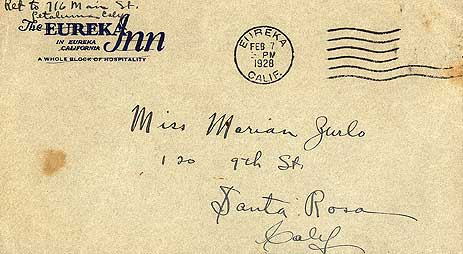 Ret to 716 Main St.
Petaluma Caly
The EUREKA Inn
IN EUREKA
CALIFORNIA
A WHOLE BLOCK OF HOSPITALITY
EUREKA
FEB 7
PM
1928
CALIF.
Miss Marian Zurlo
120 9th St.
Santa Rosa
Caly